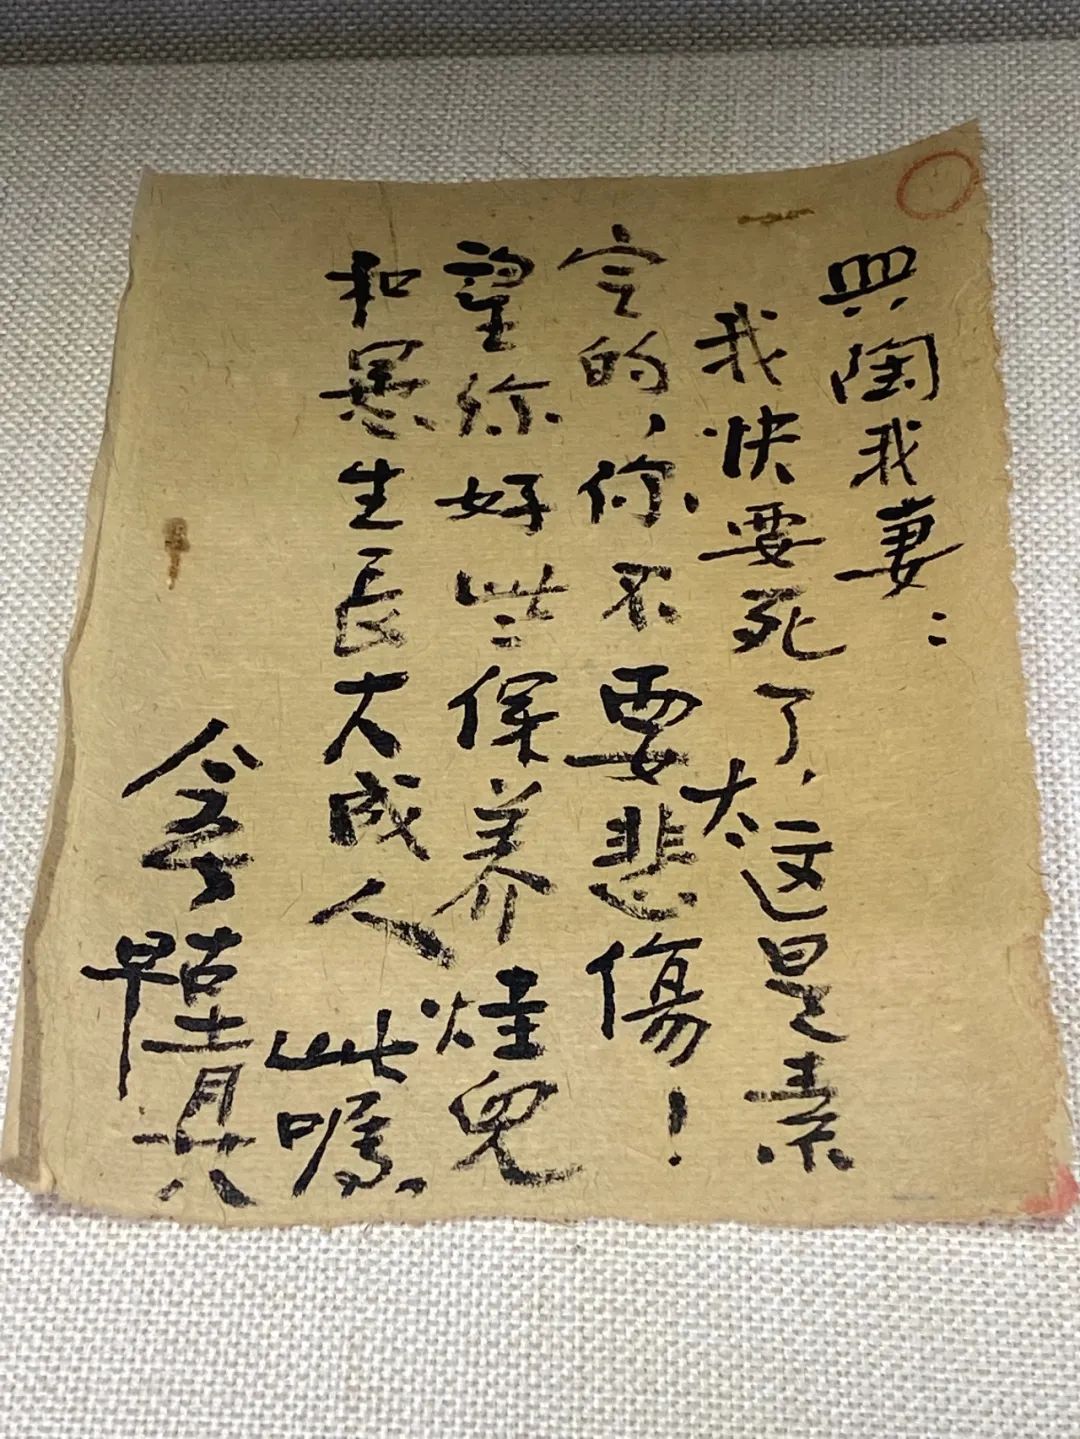 興陶我妻：
我快要死了，太这是素
定的，你不要悲傷！
望你好些保养烓兒
和生長大成人
此嘱
月廿八